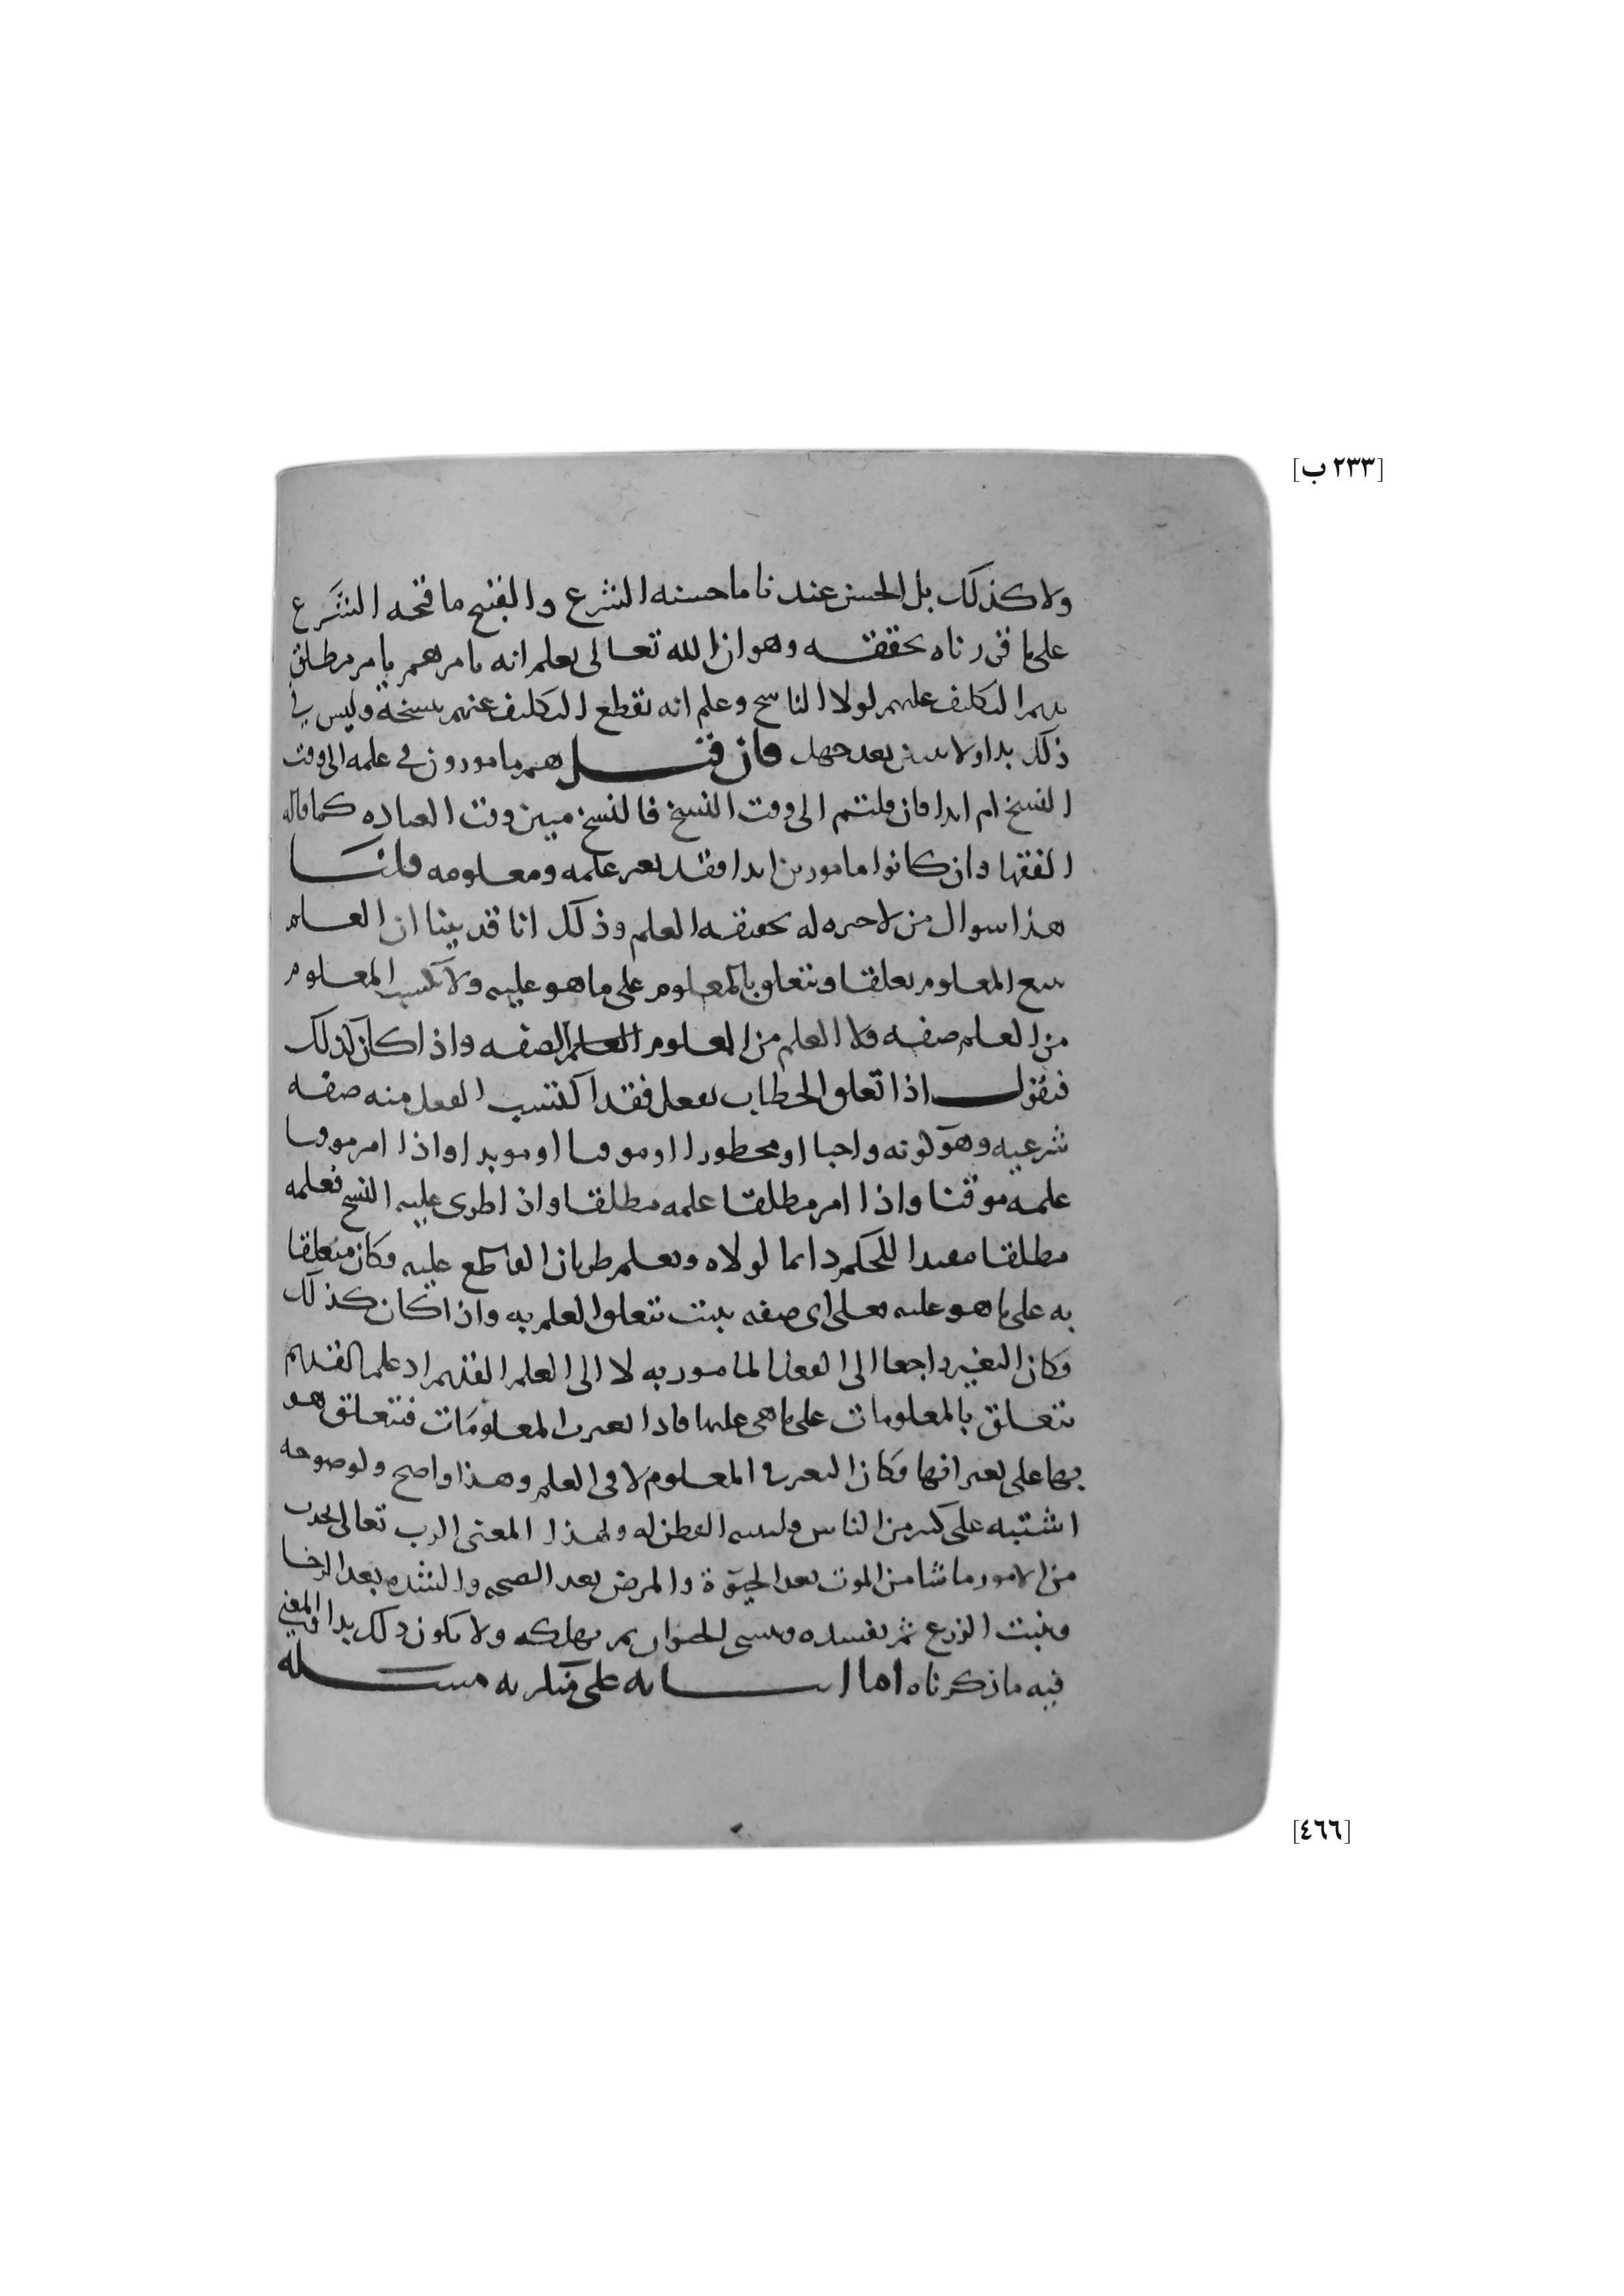 [٢٣٣ ب]
ولا كذلك بل الحسن عندنا ما حسنه الشرع والقبيح ما قبحه الشرع
على ما قررناه تحققه وهو ان الله تعالى يعلم انه يامرهم بامر مطلق
التكليف عليهم لولا الناسخ وعلم انه نقطع التكليف عنهم بنسخه وليس في
ذلك بدا ولا تبين بعد جهل فان قيل هم مامورون في علمه الى وقت
النسخ ام ابدا فان قلتم الى وقت النسخ فالنسخ مبين وقت العباده كما قاله
الفقها وان كانوا مامورين ابدا فقد تغير علمه ومعلومه قلنا
هذا سوال من لا خبره له بحقيقه العلم وذلك انا قد بينا ان العلم
يتبع المعلوم تعلقا ويتعلق بالمعلوم على ما هو عليه ولا يكسب المعلوم
من العلم صفه ولا العلم من المعلوم الصفه واذا كان كذلك
فنقول اذا تعلق الخطاب بفعل فقد اكتسب الفعل منه صفه
شرعيه وهو كونه واجبا او محظورا او موقتا او موبدا واذا امر موقتا
علمه موقتا واذا امر مطلقا علمه مطلقا واذا طرى عليه النسخ فعلمه
مطلقا مفيدا للحكم دائما لولاه ويعلم طريان القاطع عليه وكان متعلقا
به على ما هو عليه فعلى اى صفه يثبت تتعلق العلم به واذا كان كذلك
وكان التغير راجعا الى الفعل المامور به لا الى العلم القديم اذ علم القديم
تتعلق بالمعلومات على ما هى عليها فاذا تغيرت المعلومات فتتعلق هو
بها على تغيراتها وكان التغير في المعلوم لا في العلم وهذا واضح ولوضوحه
اشتبه على كثير من الناس وليس له ولهذا المعنى الرب تعالى يحدث
من الامور ما شا من الموت بعد الحيوة والمرض بعد الصحه والشده بعد الرخا
وينبت الزرع ثم يفسده وينسى الحيوان ثم يهلكه ولا يكون ذلك بدا والمعنى
فيه ما ذكرناه اما على مسله
[٤٦٦]